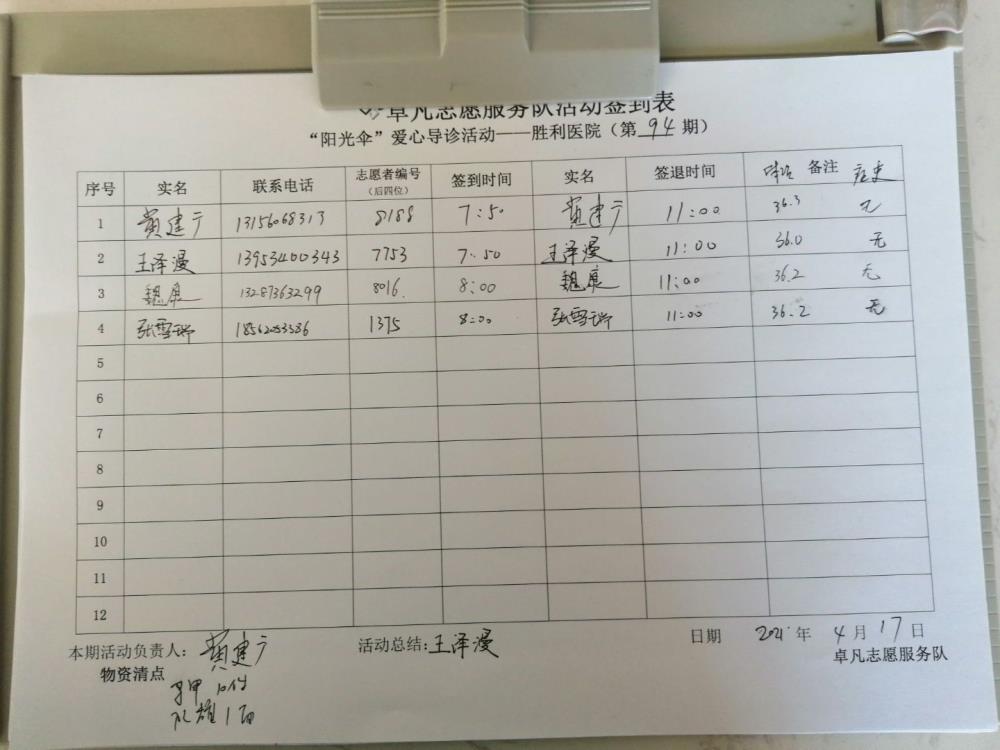 卓凡志愿服务队活动签到表
“阳光伞”爱心导诊活动——胜利医院（第 94 期）
序号 实名 联系电话 志愿者编号（后四位） 签到时间 实名 签退时间 备注
1 黄建宁 13156068313 8188 7:50 黄建宁 11:00 36.3 无
2 王泽漫 13953400343 7753 7:50 王泽漫 11:00 36.0 无
3 魏康 13287363299 8016 8:00 魏康 11:00 36.2 无
4 张雪瑞 1375 8:00 张雪瑞 11:00 36.2 无
5
6
7
8
9
10
11
12
本期活动负责人：黄建宁 活动总结：王泽漫 日期 2021 年 4 月 17 日
物资清点 卓凡志愿服务队